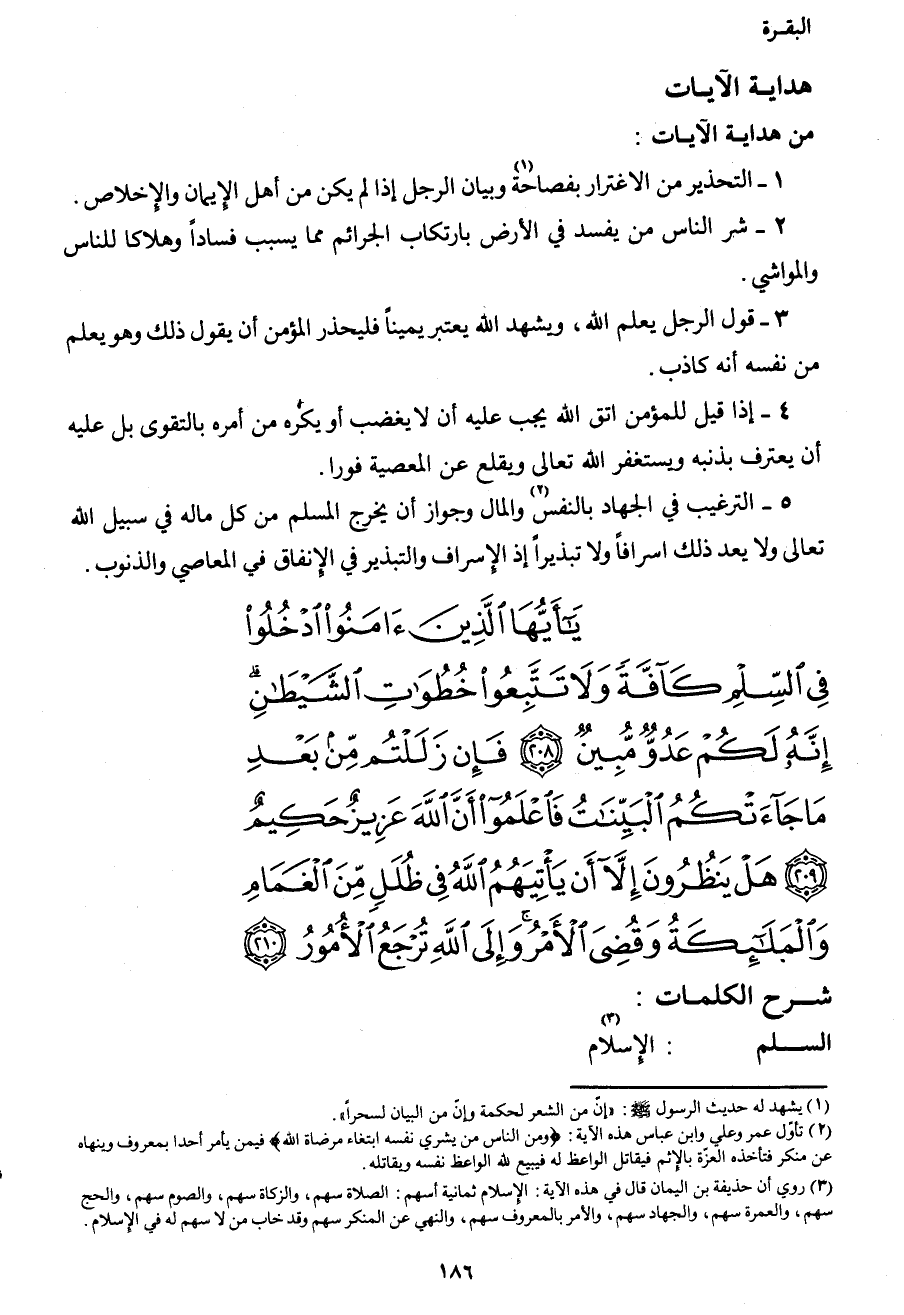 البقـرة
هدايـة الآيـات
من هدايـة الآيـات :
١ ـ التحذير من الاغترار بفصاحة(١) وبيان الرجل إذا لم يكن من أهل الإيمان والإخلاص .
٢ ـ شر الناس من يفسد في الأرض بارتكاب الجرائم مما يسبب فساداً وهلاكا للناس
والمواشي .
٣ ـ قول الرجل يعلم الله ، ويشهد الله يعتبر يميناً فليحذر المؤمن أن يقول ذلك وهو يعلم
من نفسه أنه كاذب .
٤ ـ إذا قيل للمؤمن اتق الله يجب عليه أن لا يغضب أو يكُره من أمره بالتقوى بل عليه
أن يعترف بذنبه ويستغفر الله تعالى ويقلع عن المعصية فورا .
٥ ـ الترغيب في الجهاد بالنفس(٢) والمال وجواز أن يخرج المسلم من كل ماله في سبيل الله
تعالى ولا يعد ذلك اسرافاً ولا تبذيراً إذ الإسراف والتبذير في الإنفاق في المعاصي والذنوب .
يَٰٓأَيُّهَا ٱلَّذِينَ ءَامَنُوا۟ ٱدْخُلُوا۟
فِى ٱلسِّلْمِ كَآفَّةً وَلَا تَتَّبِعُوا۟ خُطُوَٰتِ ٱلشَّيْطَٰنِ ۚ
إِنَّهُۥ لَكُمْ عَدُوٌّ مُّبِينٌ ٢٠٨ فَإِن زَلَلْتُم مِّنۢ بَعْدِ
مَا جَآءَتْكُمُ ٱلْبَيِّنَٰتُ فَٱعْلَمُوٓا۟ أَنَّ ٱللَّهَ عَزِيزٌ حَكِيمٌ
٢٠٩ هَلْ يَنظُرُونَ إِلَّآ أَن يَأْتِيَهُمُ ٱللَّهُ فِى ظُلَلٍ مِّنَ ٱلْغَمَامِ
وَٱلْمَلَٰٓئِكَةُ وَقُضِىَ ٱلْأَمْرُ ۚ وَإِلَى ٱللَّهِ تُرْجَعُ ٱلْأُمُورُ ٢١٠
شـــرح الكلمـات :
الســـلم : الإسلام(٣)
(١) يشهد له حديث الرسول ﷺ : «إنّ من الشعر لحكمة وإنّ من البيان لسحراً» .
(٢) تأوّل عمر وعلي وابن عباس هذه الآية : ﴿ومن الناس من يشري نفسه ابتغاء مرضاة الله﴾ فيمن يأمر أحدا بمعروف وينهاه
عن منكر فتأخذه العزّة بالإثم فيقاتل الواعظ له فيبيع لله الواعظ نفسه ويقاتله .
(٣) روي أن حذيفة بن اليمان قال في هذه الآية : الإسلام ثمانية أسهم : الصلاة سهم ، والزكاة سهم ، والصوم سهم ، والحج
سهم ، والعمرة سهم ، والجهاد سهم ، والأمر بالمعروف سهم ، والنهي عن المنكر سهم وقد خاب من لا سهم له في الإسلام .
١٨٦